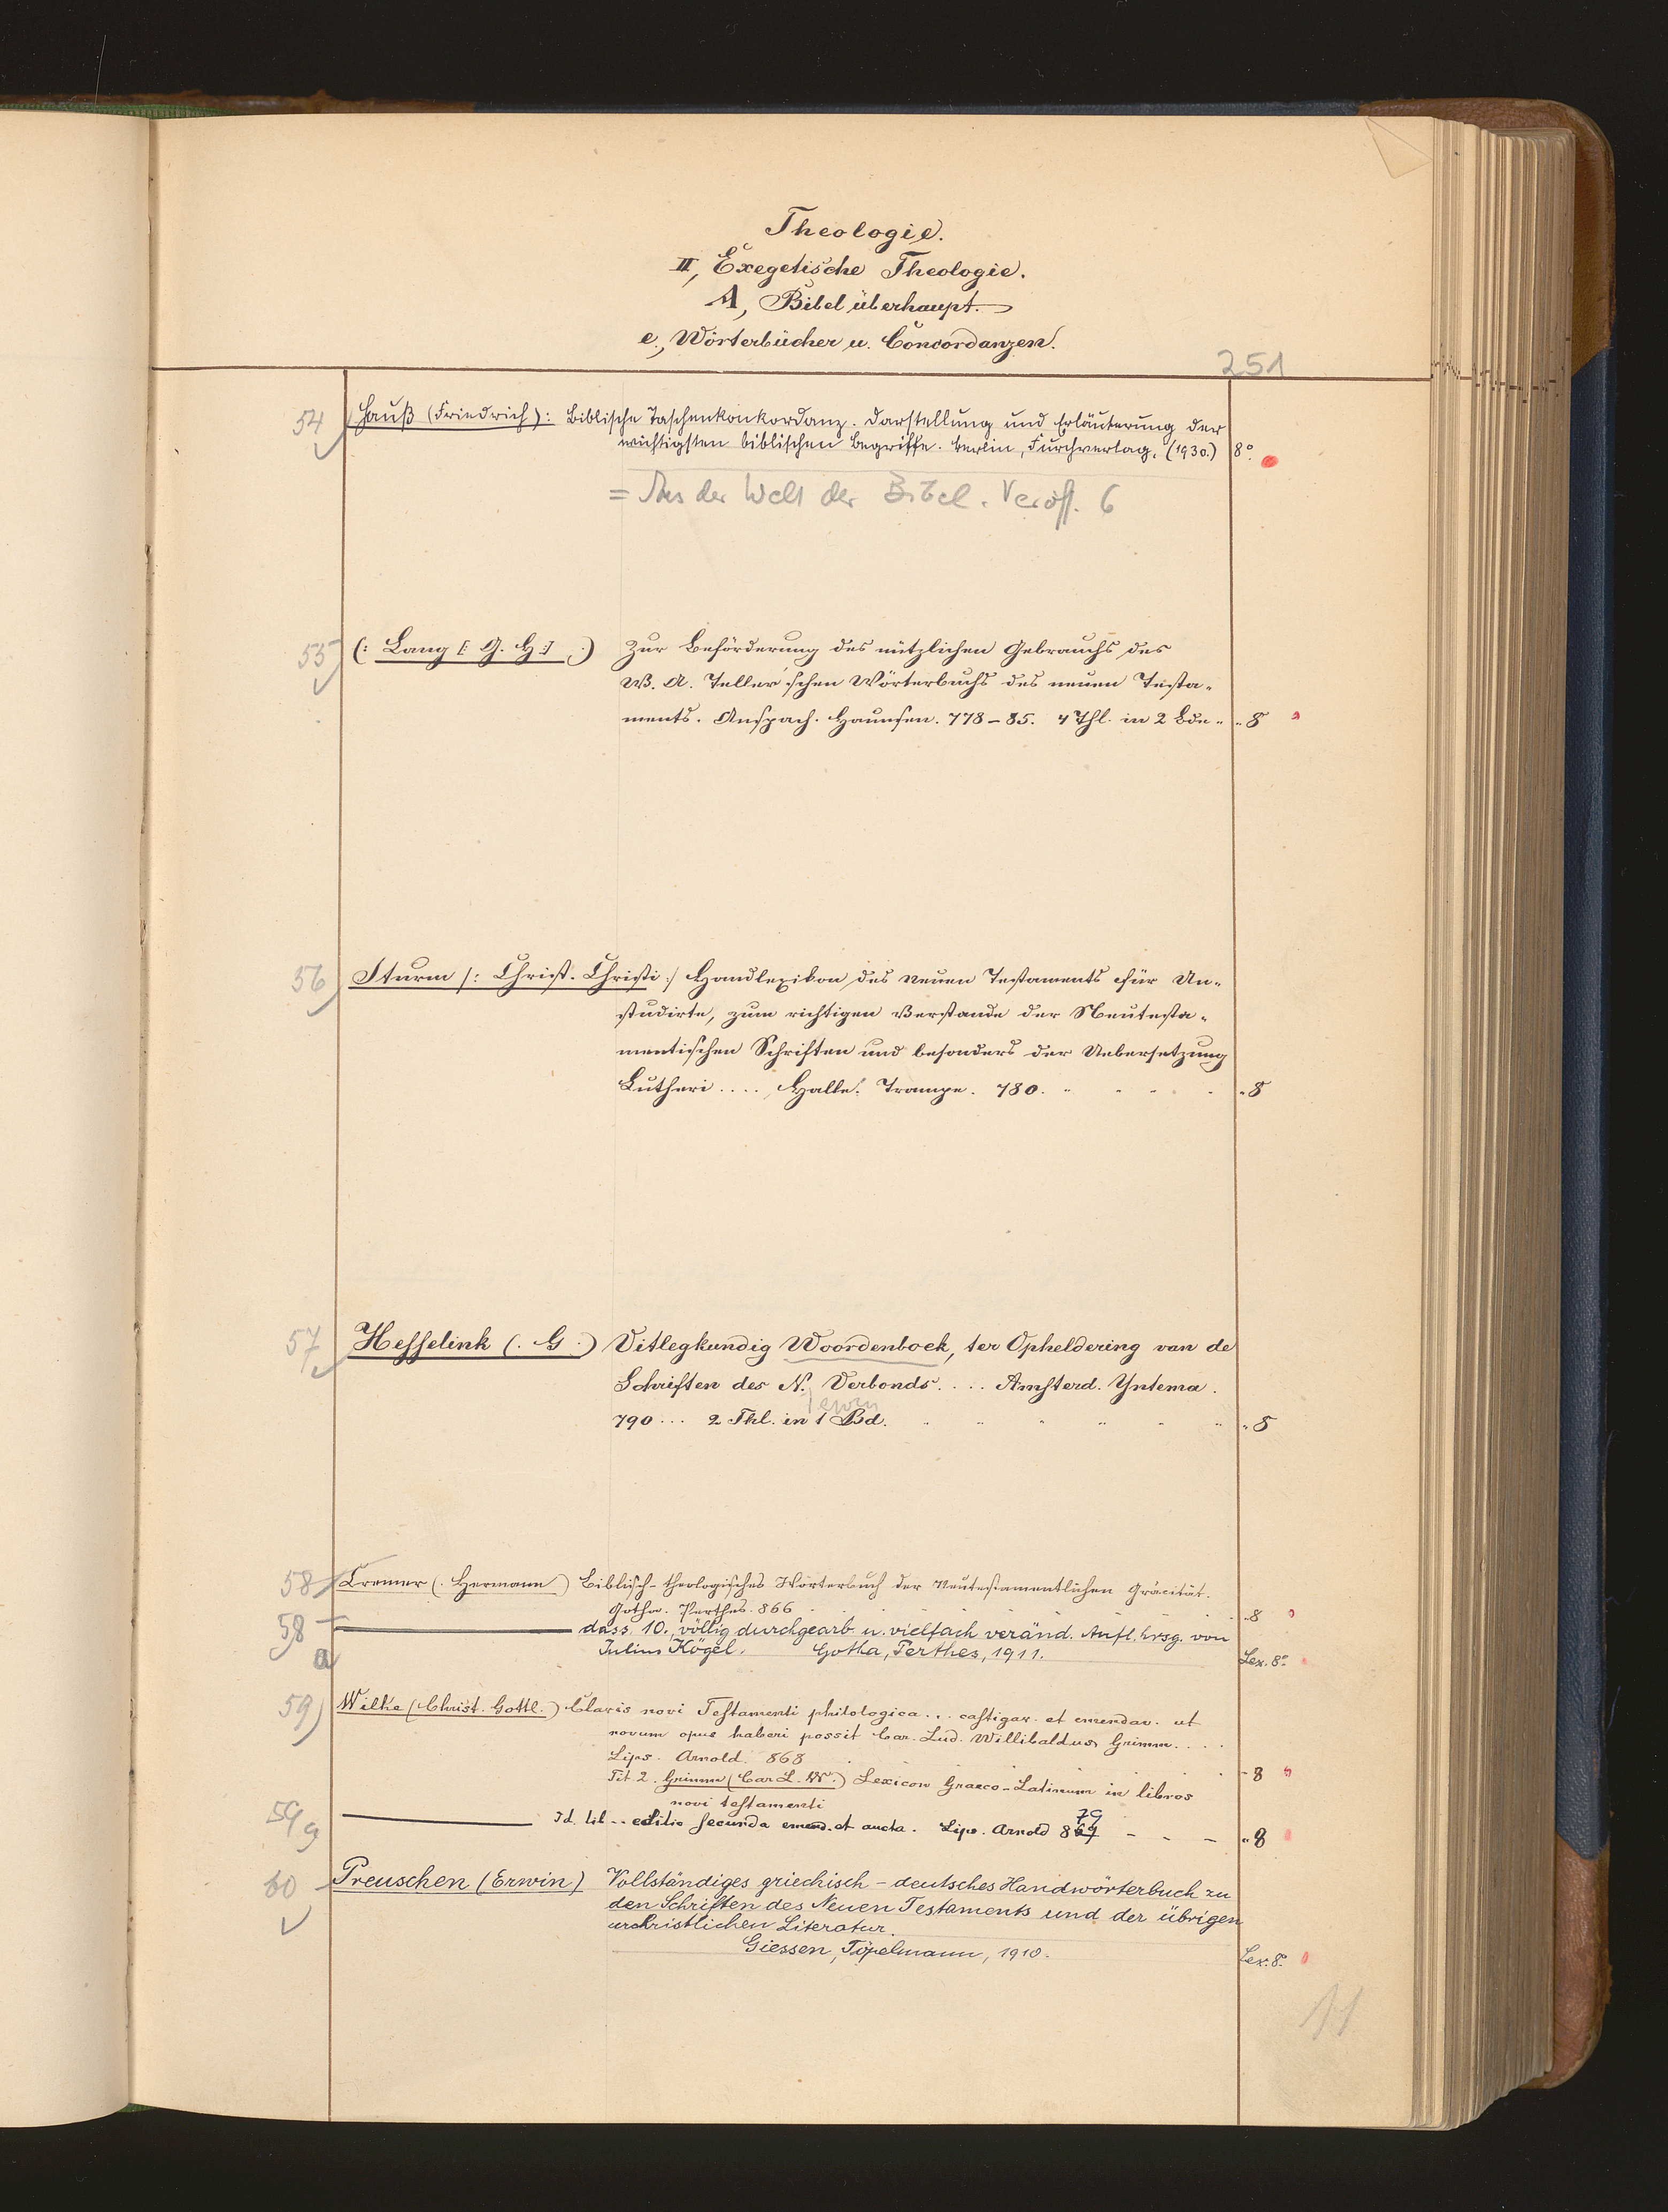 Theologie.
II, Exegetische Theologie.
A, Bibel überhaupt.
e., Wörterbücher u. Concordanzen.
251
54 Hauß (Friedrich): Biblische Taschenkonkordanz. Darstellung und Erläuterung der
wichtigsten biblischen Begriffe. Berlin, Furchverlag, (1930.) 8°.
= Aus der Welt der Bibel. Veröff. 6
55 (: Lang [: G. H :] :) Zur Beförderung des nützlichen Gebrauchs des
W. A. Teller'schen Wörterbuchs des neuen Testa-
ments. Anspach. Haueisen. 778-85. 4 Thl. in 2 Bde. 8
56 Sturm /: Christ. Christi :/ Handlexikon des Neuen Testaments für Un-
studirte, zum richtigen Verstande der Neutesta-
mentischen Schriften und besonders der Uebersetzung
Lutheri .... Halle. Trampe. 780. 8
57 Hesselink (. G .) Uitlegkundig Woordenboek, ter Opheldering van de
Schriften des N. Verbonds .... Amsterd. Yntema.
790 ... 2 Thl. in 1 Bd. 8
58 Cremer (. Hermann) Biblisch-theologisches Wörterbuch der Neutestamentlichen Gräcität.
Gotha. Perthes. 866 8
58a dass. 10., völlig durchgearb. u. vielfach veränd. Aufl. hrsg. von
Julius Kögel. Gotha, Perthes, 1911. Lex. 8°
59 Wilke (Christ. Gottl.) Clavis novi Testamenti philologica ... castigav. et emendav. ut
novum opus haberi possit Car. Lud. Willibaldus Grimm ....
Lips. Arnold. 868 8
Tit. 2. Grimm (Car L. W.) Lexicon Graeco-Latinum in libros
novi testamenti
79
59a Id. lib -- editio secunda emend. et aucta. Lips. Arnold 869 - - - 8
60 Preuschen (Erwin) Vollständiges griechisch-deutsches Handwörterbuch zu
den Schriften des Neuen Testaments und der übrigen
urchristlichen Literatur.
Giessen, Töpelmann, 1910. Lex. 8°.
11